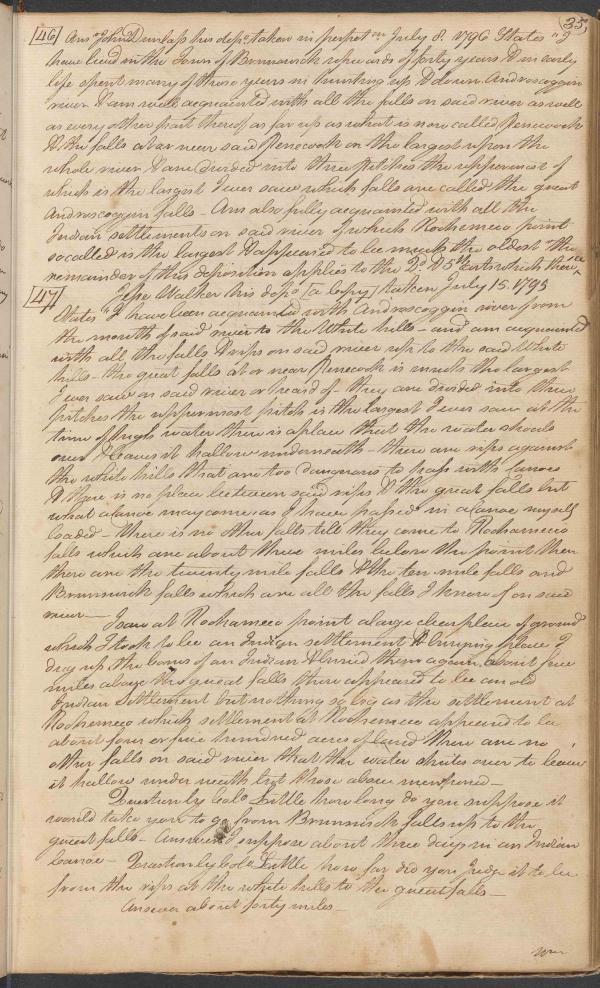 35
46 Ans John Dunlap his depo. taken in perpetm July 8. 1796 States "I
have lived in the Town of Brunswick upwards of forty years & in early
life spent many of those years in hunting up & down Androscoggin
river. I am well acquainted with all the falls on said river as well
as every other part thereof as far up as what is now called Pemecook
& the falls at or near said Penecook on the largest upon the
whole river & are divided into three pitches the uppermost of
which is the largest I ever saw which falls are called the great
Androscoggin falls - Am also fully acquainted with all the
Indian settlements on said river of which Rockemeco point
so called is the largest & appeared to be much the oldest" the
remainder of this deposition applies to the 2d. & 5th. which
47 Jesse Walker his depo. [a copy] taken July 15. 1795
States "I have been acquainted with Androscoggin river from
the mouth of said river to the White hills - and am acquainted
with all the falls & rips on said river up to the said White
hills - the great falls at or near Penecook is much the largest
I ever saw on said river or heard of - they are divided into three
pitches the uppermost pitch is the largest I ever saw at the
time of high water there is a place that the water shoots
over & leaves it hallow underneath - there are rips against
the white hills that are too dangerous to pass with canoes
& there is no place between said rips & the great falls but
what a canoe may come as I have passed in a canoe myself
loaded - there is no other falls till they come to Rockameco
falls which are about three miles below the point then
there are the twenty mile falls & the ten mile falls and
Brunswick falls which are all the falls I know of on said
river -
I saw at Rockameco point a large clear place of ground
which I took to be an Indian settlement & burying place I
dug up the bones of an Indian & buried them again, about five
miles above the great falls there appeared to be an old
Indian Settlement but nothing so big as the settlement at
Rockemeco which settlement at Rockemeco appeared to be
about four or five hundred acres of land there are no
other falls on said river that the water shutes over to leave
it hallow under neath but those above mentioned -
Question by Cole Little how long do you suppose it
would take you to go from Brunswick falls up to the
great falls - Answer I suppose about three days in an Indian
Canoe - Question by Cole Little how far did you judge it to be
from the rips at the white hills to the great falls -
Answer about forty miles -